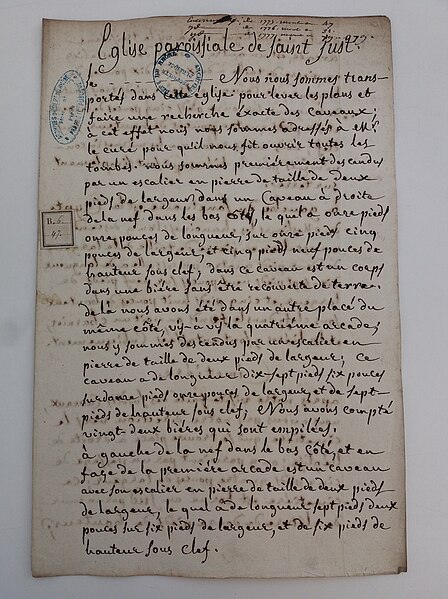 de 1773
de 1776
de 1777
47. 977.
Eglise paroissiale de saint Just.
Nous nous sommes trans-
portés dans cette église pour lever les plans et
faire une recherche éxacte des Caveaux;
à cet effet nous nous sommes adressés à Mr.
le curé pour qu'il nous fit ouvrir toutes les
tombes. nous sommes premiérement descendus
par un escalier en pierre de taille de Deux
pieds de largeur dans un Caveau à droite
de la nef dans les bas côté, lequel a onze pieds
onze pouces de longueur, sur onze pieds cinq
pouces de largeur, et cinq pieds neuf pouces de
hauteur sous clef, dans ce caveau est un corps
dans une bière sans être recouverte de terre.
De là nous avons été dans un autre placé du
même côté, vis-à-vis la quatrième arcade,
nous y sommes descendus par un escalier en
pierre de taille de deux pieds de largeur; ce
caveau a de longueur Dix-sept pieds six pouces
sur douze pieds onze pouces de largeur, et de sept-
pieds de hauteur sous clef; Nous avons compté
vingt deux bières qui sont empilées.
à gauche de la nef dans le bas côté, et en
face de la premiére arcade est un caveau
avec son escalier en pierre de taille de deux pieds
de largeur, le quel a de longueur sept pieds deux
pouces sur six pieds de largeur, et de six pieds de
hauteur sous clef.
B. 6.
47.